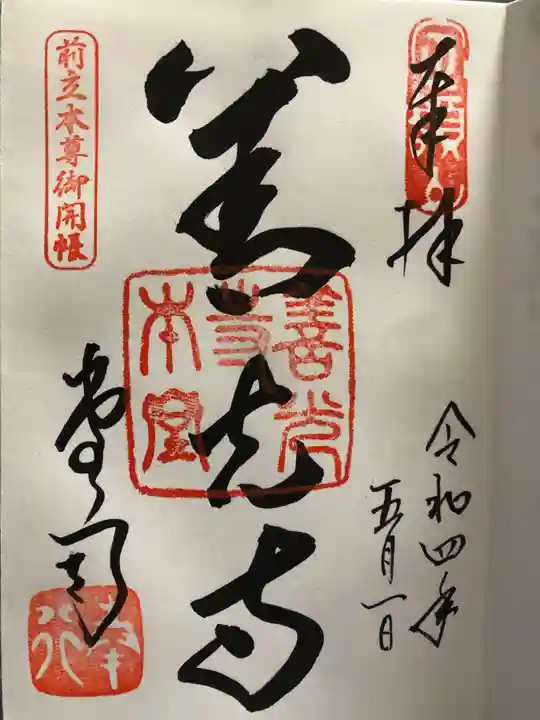 奉拝
令和四年
五月一日
善光寺
善光寺本堂
前立本尊御開帳
堂司
奉行